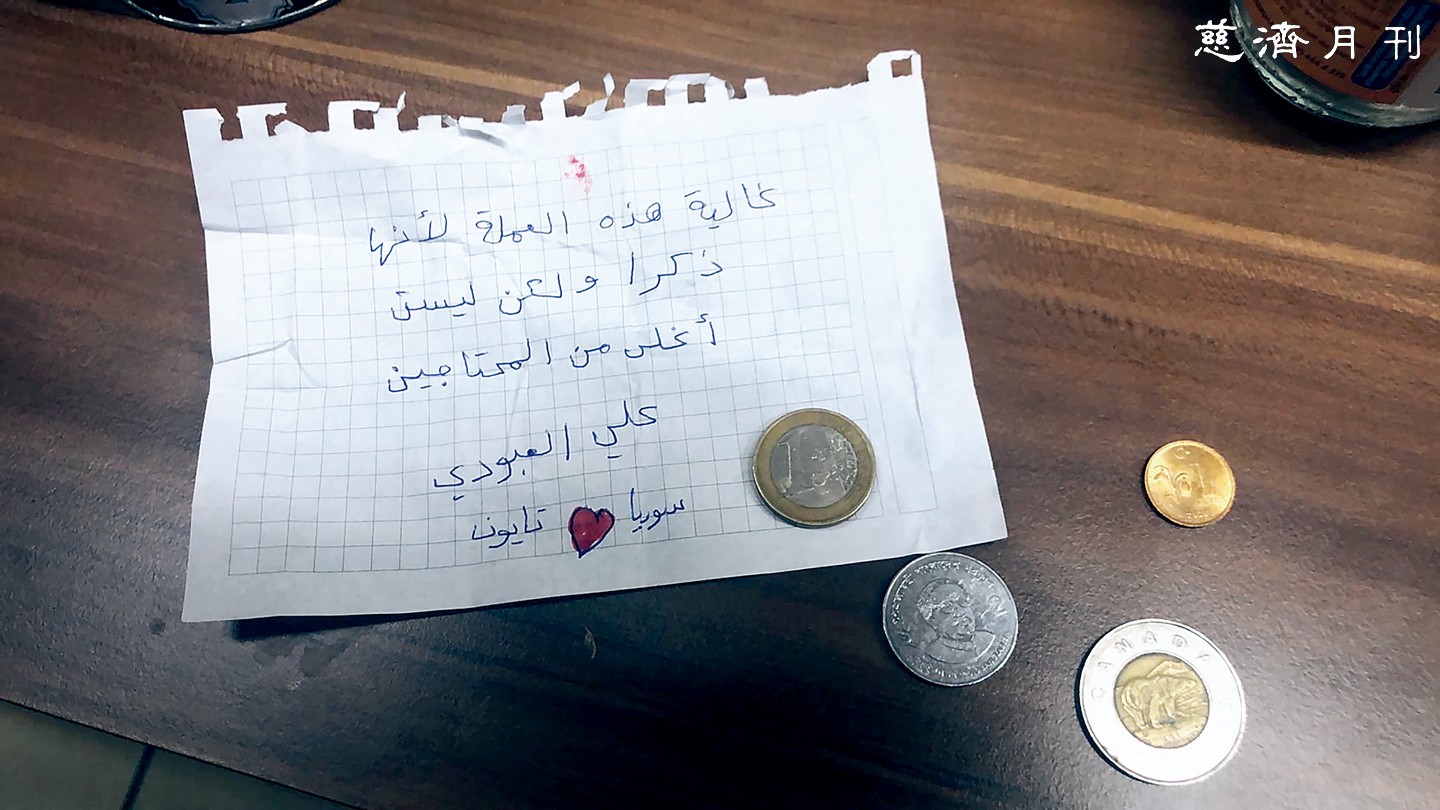 慈濟月刊
غالية هذه العملة لأنها
ذكرا ولكن ليست
أغلى من المحتاجين
علي العبودي
سوريا تايون
1
CANADA